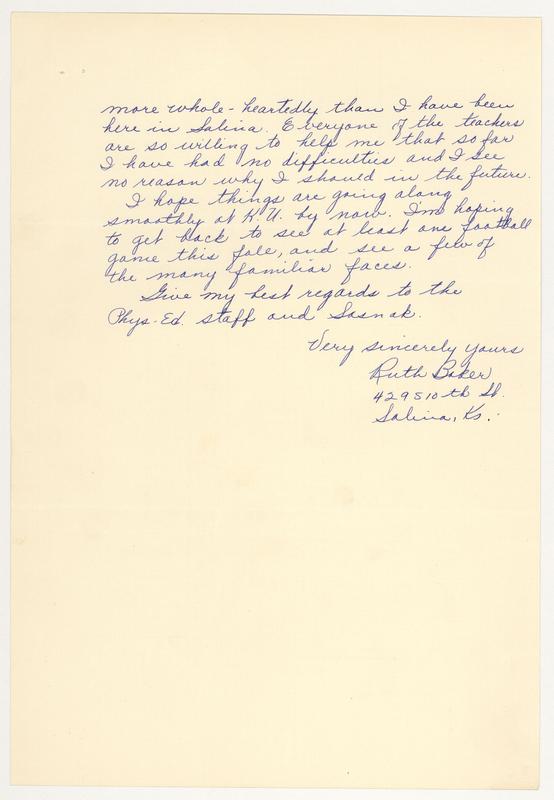 more whole-heartedly than I have been
here in Salina. Everyone of the teachers
are so willing to help me that so far
I have had no difficulties and I see
no reason why I should in the future.
I hope things are going along
smoothly at K.U. by now. I'm hoping
to get back to see at least one football
game this fale, and see a few of
the many familiar faces.
Give my best regards to the
Phys-Ed. staff and Sasnak.
Very sincerely yours
Ruth Baker
429 S 10th St.
Salina, Ks.